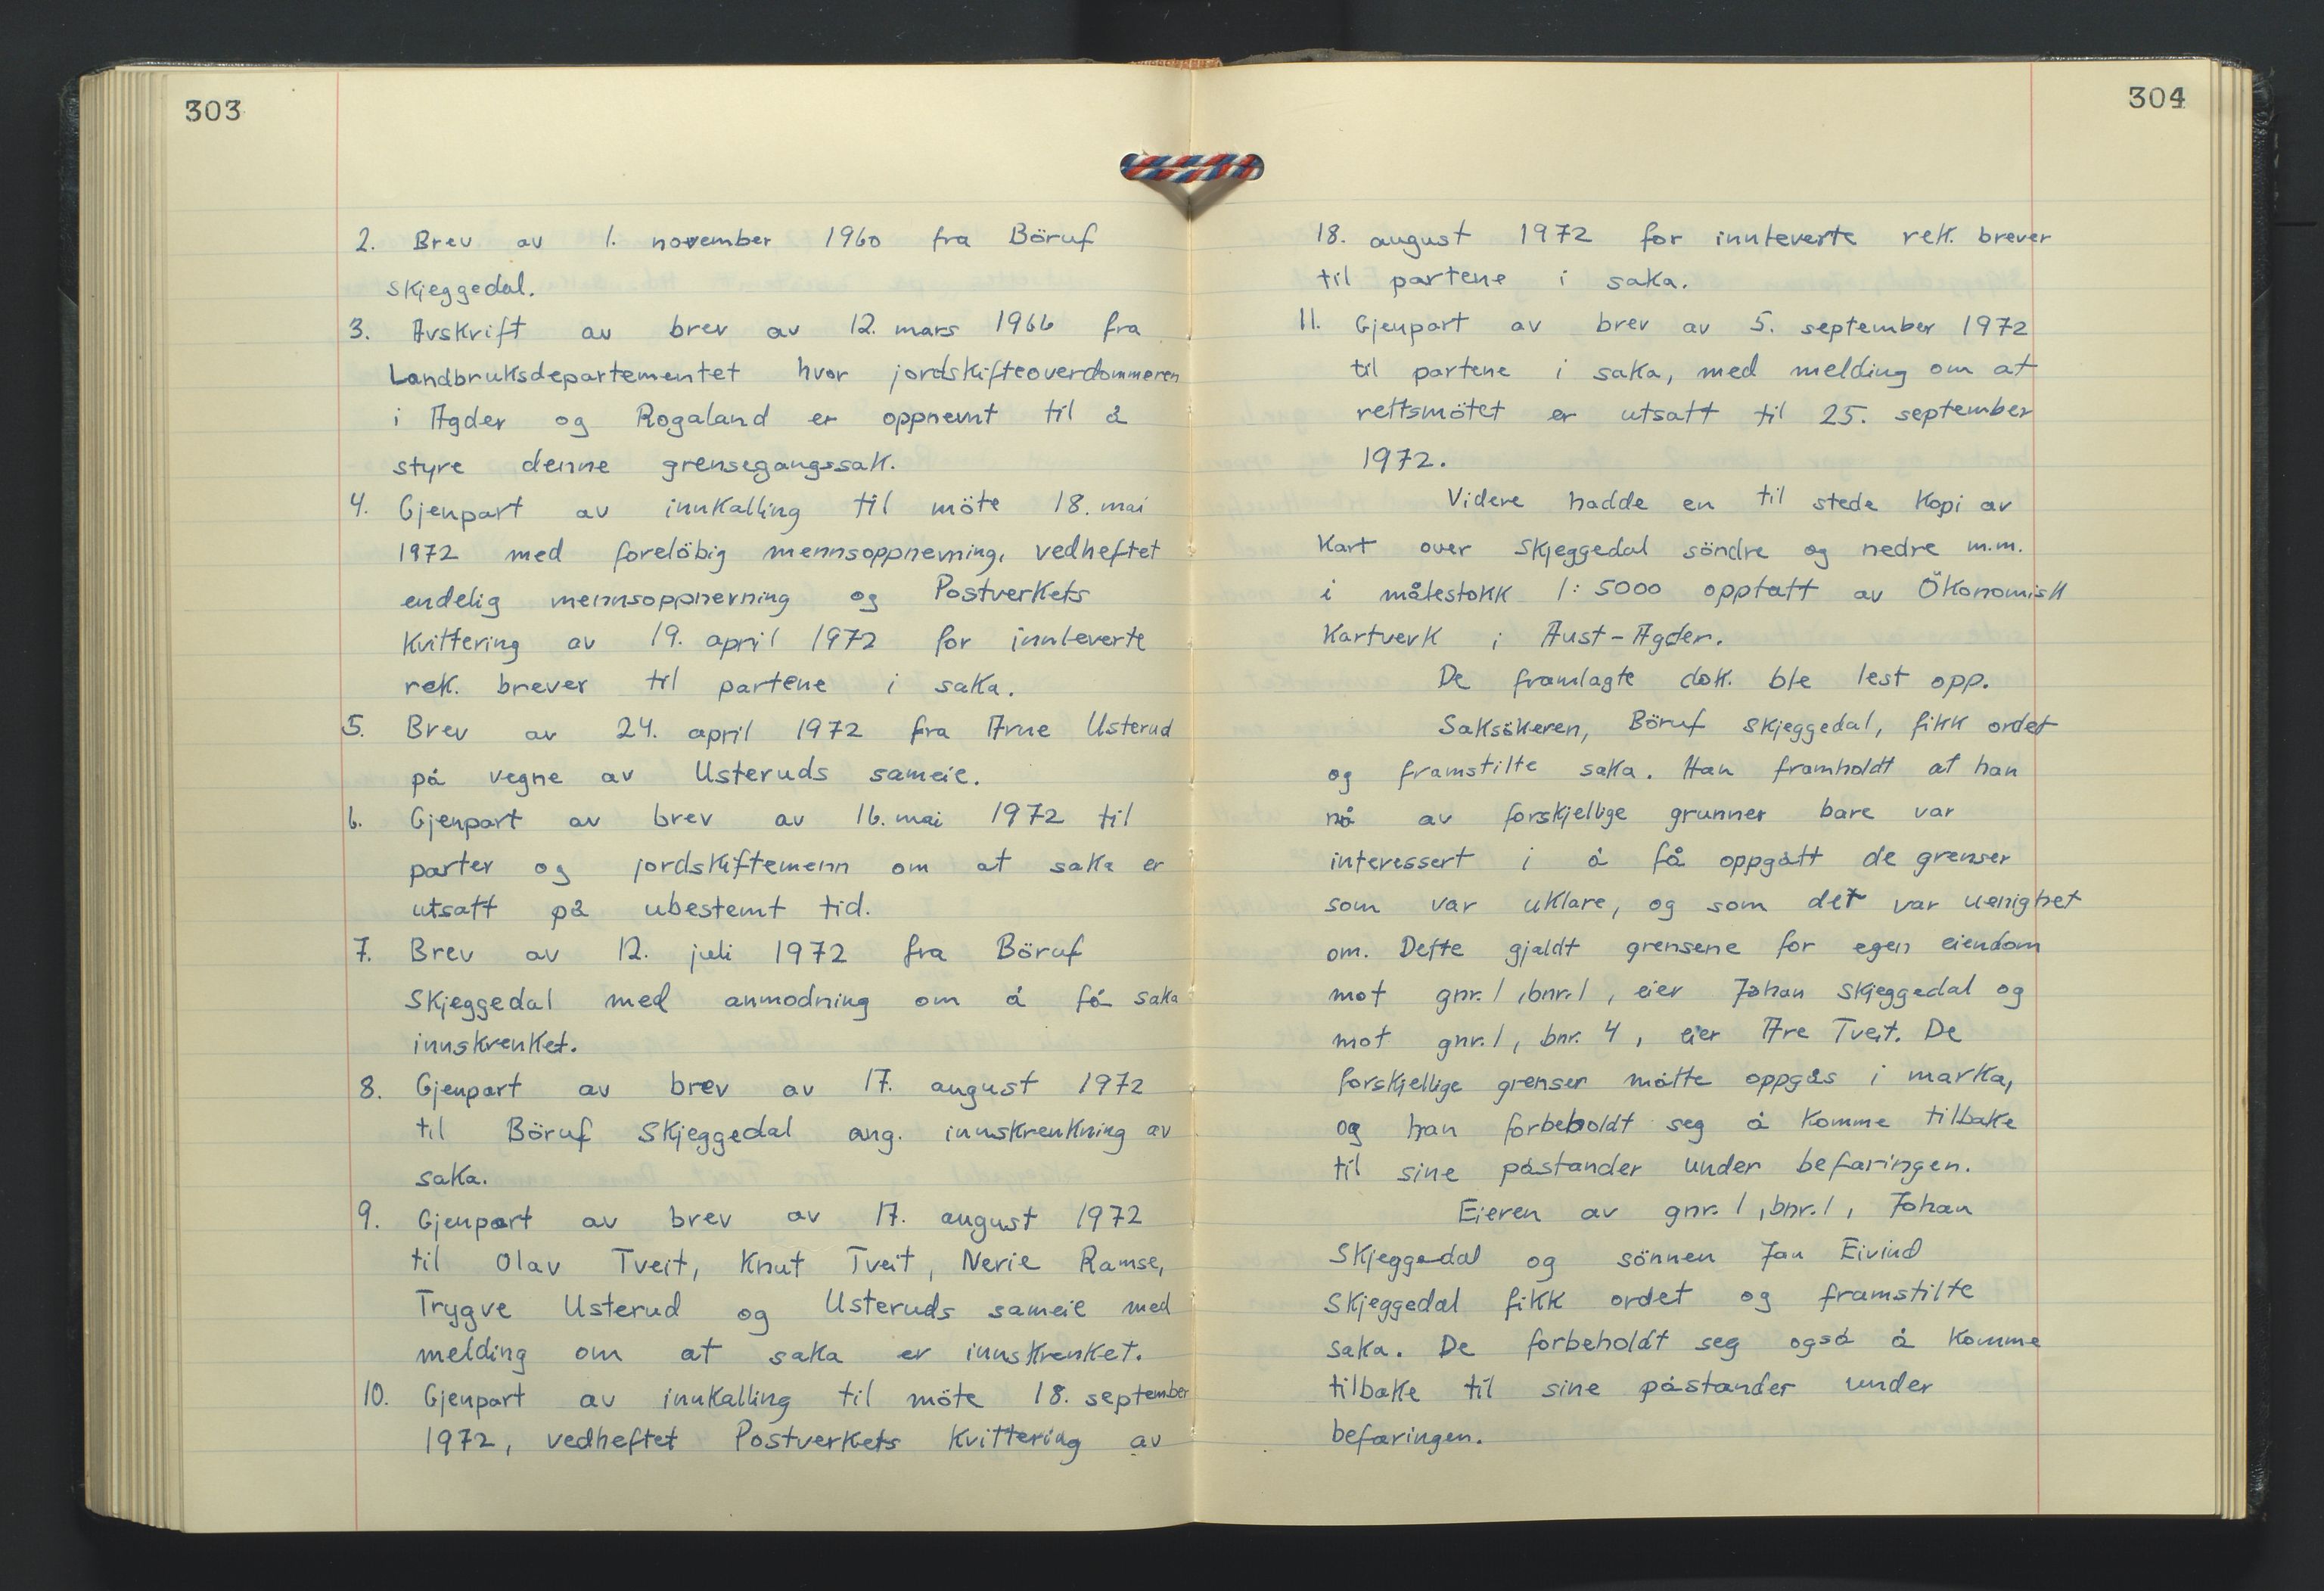 303
2. Brev av 1. november 1960 fra Böruf
Skjeggedal.
3. Avskrift av brev av 12. mars 1966 fra
Landbruksdepartementet hvor jordskifteoverdommeren
i Agder og Rogaland er oppnevnt til å
styre denne grensegangssak.
4. Gjenpart av innkalling til möte 18. mai
1972 med forelöbig mennsoppnevning, vedheftet
endelig mennsoppnevning og Postverkets
kvittering av 19. april 1972 for innleverte
rek. brever til partene i saka.
5. Brev av 24. april 1972 fra Arne Usterud
på vegne av Usteruds sameie.
6. Gjenpart av brev av 16. mai 1972 til
parter og jordskiftemenn om at saka er
utsatt på ubestemt tid.
7. Brev av 12. juli 1972 fra Böruf
Skjeggedal med anmodning om å få saka
innskrenket.
8. Gjenpart av brev av 17. august 1972
til Böruf Skjeggedal ang. innskrenkning av
saka.
9. Gjenpart av brev av 17. august 1972
til Olav Tveit, Knut Tveit, Nerie Ramse,
Trygve Usterud og Usteruds sameie med
melding om at saka er innskrenket.
10. Gjenpart av innkalling til möte 18. september
1972, vedheftet Postverkets kvittering av
304
18. august 1972 for innleverte rek. brever
til partene i saka.
11. Gjenpart av brev av 5. september 1972
til partene i saka, med melding om at
rettsmötet er utsatt til 25. september
1972.
Videre hadde en til stede kopi av
kart over Skjeggedal söndre og nedre m.m.
i målestokk 1:5000 opptatt av Ökonomisk
Kartverk i Aust-Agder.
De framlagte dok. ble lest opp.
Saksökeren, Böruf Skjeggedal, fikk ordet
og framstilte saka. Han framholdt at han
nå av forskjellige grunner bare var
interessert i å få oppgått de grenser
som var uklare, og som det var uenighet
om. Dette gjaldt grensene for egen eiendom
mot gnr. 1, bnr. 1, eier Johan Skjeggedal og
mot gnr. 1, bnr. 4, eier Are Tveit. De
forskjellige grenser måtte oppgås i marka,
og han forbeholdt seg å komme tilbake
til sine påstander under befaringen.
Eieren av gnr. 1, bnr. 1, Johan
Skjeggedal og sönnen Jan Eivind
Skjeggedal fikk ordet og framstilte
saka. De forbeholdt seg også å komme
tilbake til sine påstander under
befaringen.